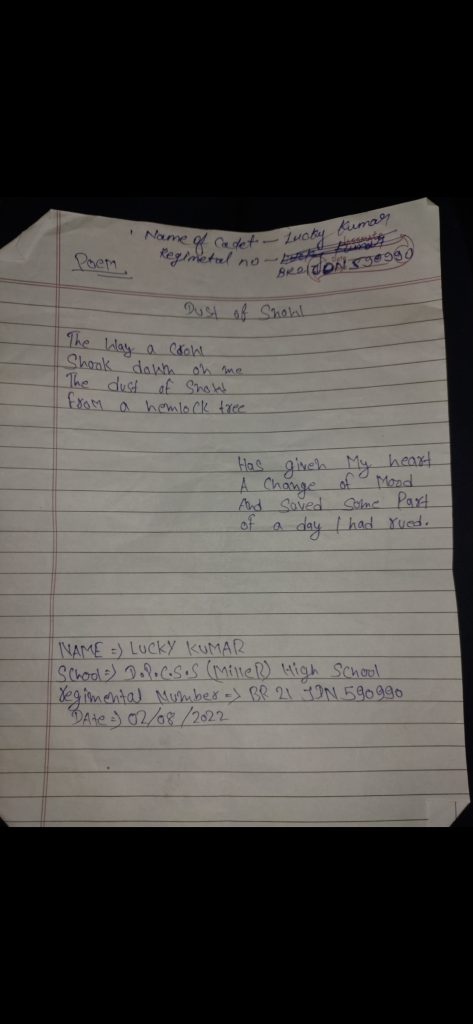 Name of Cadet - Lucky Kumar
Regimetal no - BR21JDN590990
Poem
Dust of Snow
The Way a Crow
Shook down on me
The dust of Snow
from a hemlock tree
Has given My heart
A Change of Mood
And Saved Some Part
of a day I had rued.
NAME => LUCKY KUMAR
School => D.P.C.S.S (MilleR) High School
regimental Number => BR 21 JDN 590990
DAte => 02/08/2022